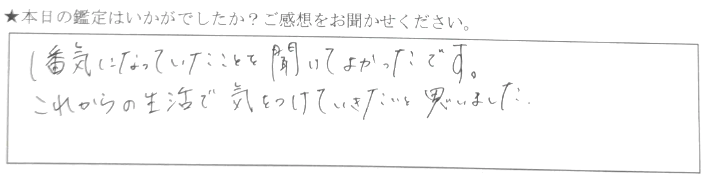 ★本日の鑑定はいかがでしたか？ご感想をお聞かせください。
1番気になっていたことを聞けてよかったです。
これからの生活で気をつけていきたいと思いました.